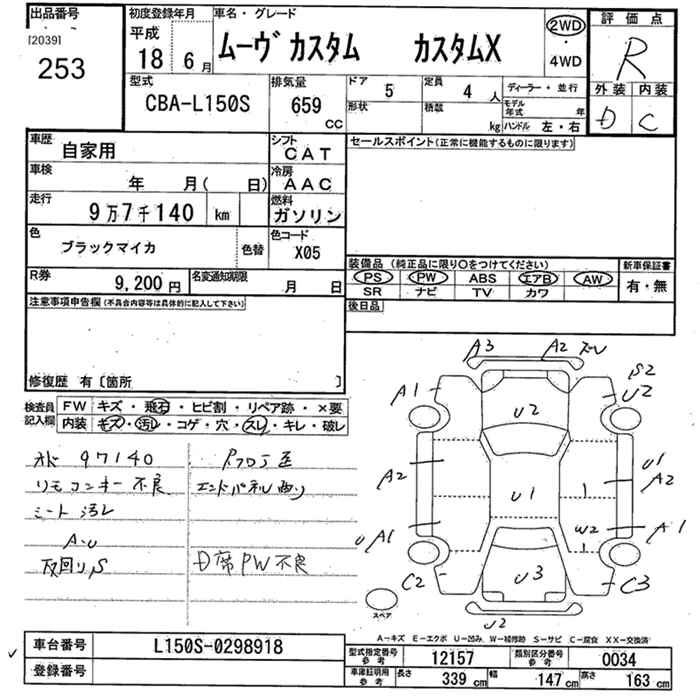 出品番号
[20391
253
初度登録年月
平成
18 6 月
車名・グレード
ムーヴ カスタム カスタムX
2WD
・
4WD
評価点
R
外装 内装
D C
型式
CBA-L150S
排気量
659
CC
ドア 5
形状
定員 4 人
積載 kg
ディーラー・並行
モデル年式 年
ハンドル 左・右
車歴
自家用
シフト
CAT
セールスポイント(正常に機能するものに限ります)
車検
年 月( 日)
冷房
AAC
走行
9万7千140 km
燃料
ガソリン
色
ブラックマイカ
色替
色コード
X05
装備品 (純正品に限り○をつけてください)
新車保証書
PS PW ABS エアB AW
SR ナビ TV カワ
有・無
R券
9,200 円
名変通知期限
月 日
後日品
注意事項申告欄(不具合内容等は具体的に記入して下さい)
修復歴 有〔箇所 〕
検査員
記入欄
FW キズ・飛石・ヒビ割・リペア跡・×要
内装 キズ・汚レ・コゲ・穴・スレ・キレ・破レ
97140
リモコンキー不良
シート汚レ
A-U
エンドパネル曲り
D席PW不良
A3 A2 ズレ
S2
A1 U2
U2
A2 U1 U1
A2
W2
U A1 A1
C2 U3 C3
U2
スペア
A-キズ E-エクボ U-凹み W-補修跡 S-サビ C-腐食 XX-交換済
車台番号
L150S-0298918
登録番号
型式指定番号
参考
12157
類別区分番号
参考
0034
車庫証明用
参考
長さ 339 cm 幅 147 cm 高さ 163 cm